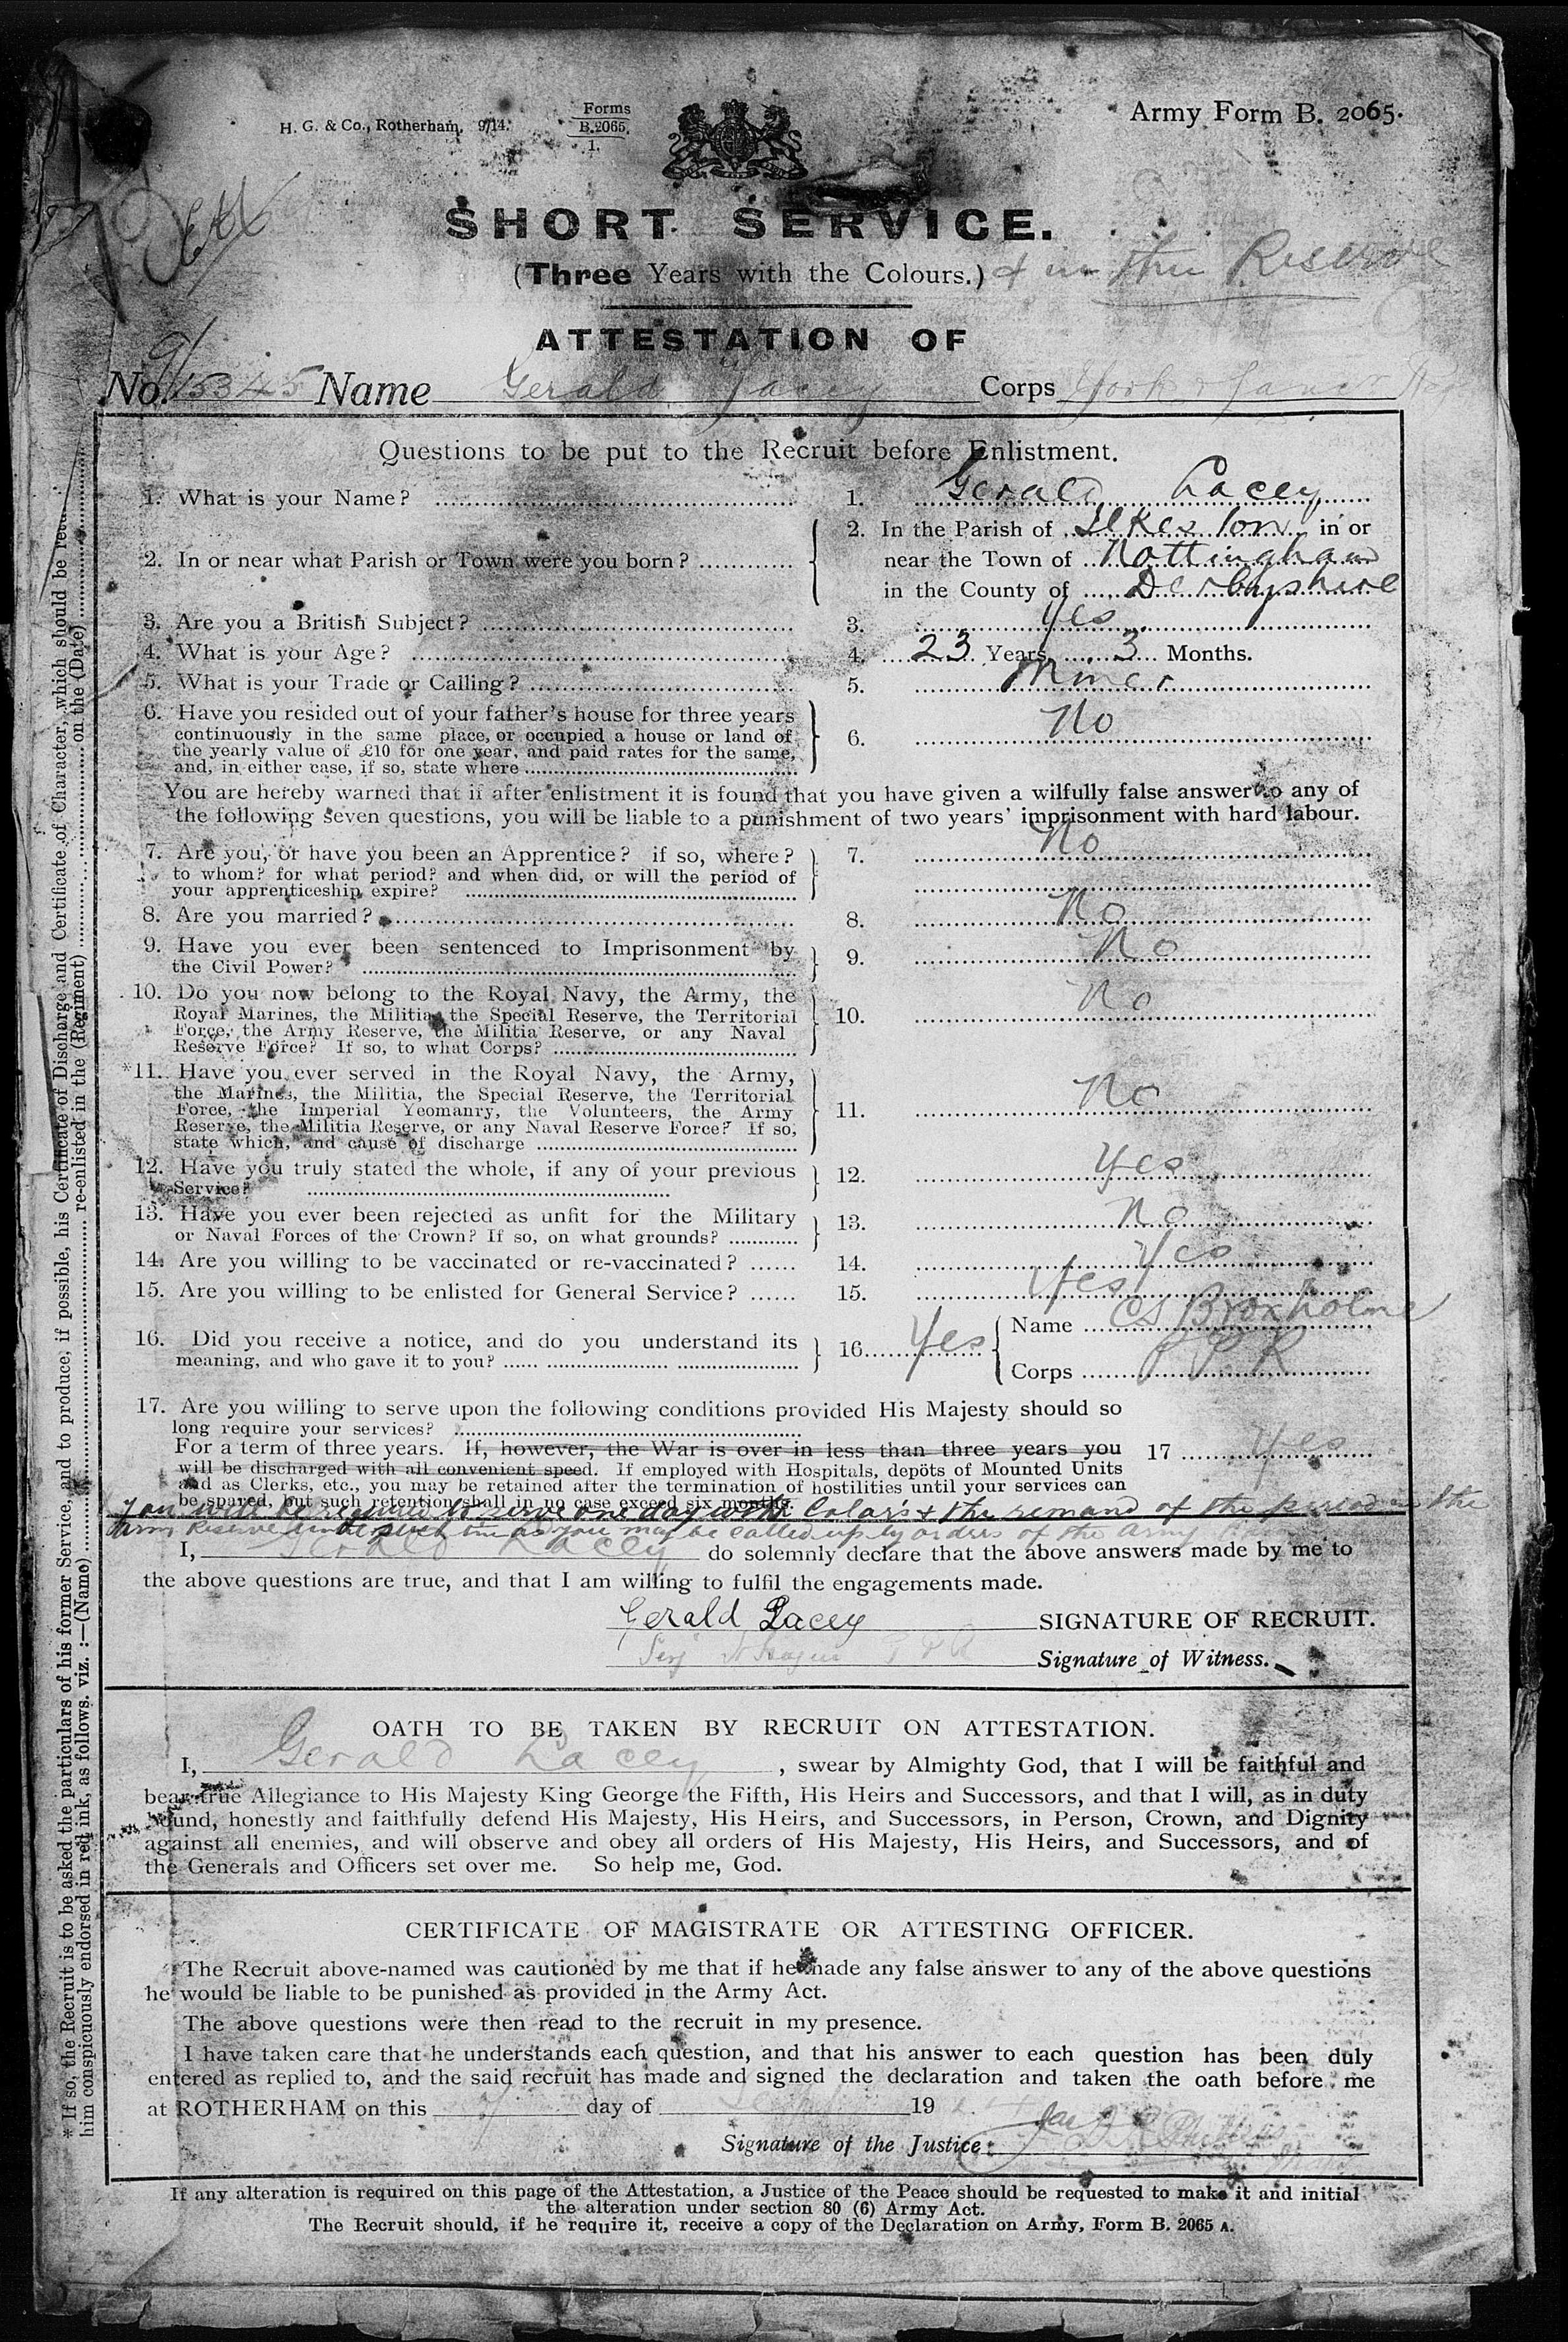 H. G. & Co., Rotherham. 9/14.
Forms
B.2065.
1.
Army Form B. 2065.
SHORT SERVICE.
(Three Years with the Colours.) & in the Reserve
ATTESTATION OF
No. 9/15345 Name Gerald Lacey Corps York & Lancs R
Questions to be put to the Recruit before Enlistment.
1. What is your Name? 1. Gerald Lacey
2. In or near what Parish or Town were you born? 2. In the Parish of Ilkeston in or
near the Town of Nottingham
in the County of Derbyshire
3. Are you a British Subject? 3. Yes
4. What is your Age? 4. 23 Years 3 Months.
5. What is your Trade or Calling? 5. Miner
6. Have you resided out of your father's house for three years
continuously in the same place, or occupied a house or land of
the yearly value of £10 for one year, and paid rates for the same,
and, in either case, if so, state where 6. No
You are hereby warned that if after enlistment it is found that you have given a wilfully false answer to any of
the following seven questions, you will be liable to a punishment of two years' imprisonment with hard labour.
7. Are you, or have you been an Apprentice? if so, where? 7. No
to whom? for what period? and when did, or will the period of
your apprenticeship expire?
8. Are you married? 8. No
9. Have you ever been sentenced to Imprisonment by
the Civil Power? 9. No
10. Do you now belong to the Royal Navy, the Army, the
Royal Marines, the Militia, the Special Reserve, the Territorial
Force, the Army Reserve, the Militia Reserve, or any Naval
Reserve Force? If so, to what Corps? 10. No
*11. Have you ever served in the Royal Navy, the Army,
the Marines, the Militia, the Special Reserve, the Territorial
Force, the Imperial Yeomanry, the Volunteers, the Army
Reserve, the Militia Reserve, or any Naval Reserve Force? If so,
state which, and cause of discharge 11. No
12. Have you truly stated the whole, if any of your previous
Service? 12. Yes
13. Have you ever been rejected as unfit for the Military
or Naval Forces of the Crown? If so, on what grounds? 13. No
14. Are you willing to be vaccinated or re-vaccinated? 14. Yes
15. Are you willing to be enlisted for General Service? 15. Yes
16. Did you receive a notice, and do you understand its
meaning, and who gave it to you? 16. Yes Name CS Broxholme
Corps
17. Are you willing to serve upon the following conditions provided His Majesty should so
long require your services?
For a term of three years. If, however, the War is over in less than three years you 17 Yes
will be discharged with all convenient speed. If employed with Hospitals, depôts of Mounted Units
and as Clerks, etc., you may be retained after the termination of hostilities until your services can
be spared, but such retention shall in no case exceed six months.
You will be required to serve one day with Colors & the remand of the period in the
Army Reserve until such time as you may be called up by orders of the Army
I, Gerald Lacey do solemnly declare that the above answers made by me to
the above questions are true, and that I am willing to fulfil the engagements made.
Gerald Lacey SIGNATURE OF RECRUIT.
Signature of Witness.
OATH TO BE TAKEN BY RECRUIT ON ATTESTATION.
I, Gerald Lacey, swear by Almighty God, that I will be faithful and
bear true Allegiance to His Majesty King George the Fifth, His Heirs and Successors, and that I will, as in duty
bound, honestly and faithfully defend His Majesty, His Heirs, and Successors, in Person, Crown, and Dignity
against all enemies, and will observe and obey all orders of His Majesty, His Heirs, and Successors, and of
the Generals and Officers set over me. So help me, God.
CERTIFICATE OF MAGISTRATE OR ATTESTING OFFICER.
The Recruit above-named was cautioned by me that if he made any false answer to any of the above questions
he would be liable to be punished as provided in the Army Act.
The above questions were then read to the recruit in my presence.
I have taken care that he understands each question, and that his answer to each question has been duly
entered as replied to, and the said recruit has made and signed the declaration and taken the oath before me
at ROTHERHAM on this day of 19
Signature of the Justice
If any alteration is required on this page of the Attestation, a Justice of the Peace should be requested to make it and initial
the alteration under section 80 (6) Army Act.
The Recruit should, if he require it, receive a copy of the Declaration on Army, Form B. 2065 A.
* If so, the Recruit is to be asked the particulars of his former Service, and to produce, if possible, his Certificate of Discharge and Certificate of Character, which should be
him conspicuously endorsed in red ink, as follows. viz. :—(Name) re-enlisted in the (Regiment) on the (Date)